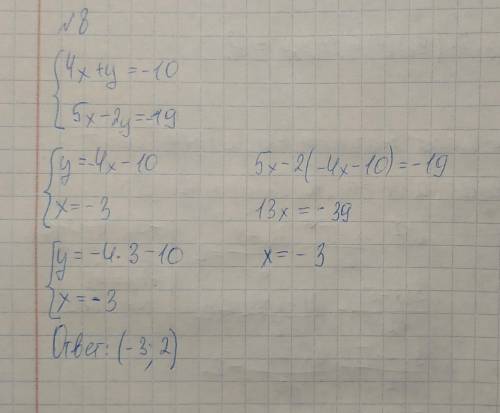 №8
4x+y=-10
5x-2y=-19
y=-4x-10 5x-2(-4x-10)=-19
x=-3 13x=-39
y=-4·3-10 x=-3
x=-3
Ответ: (-3; 2)